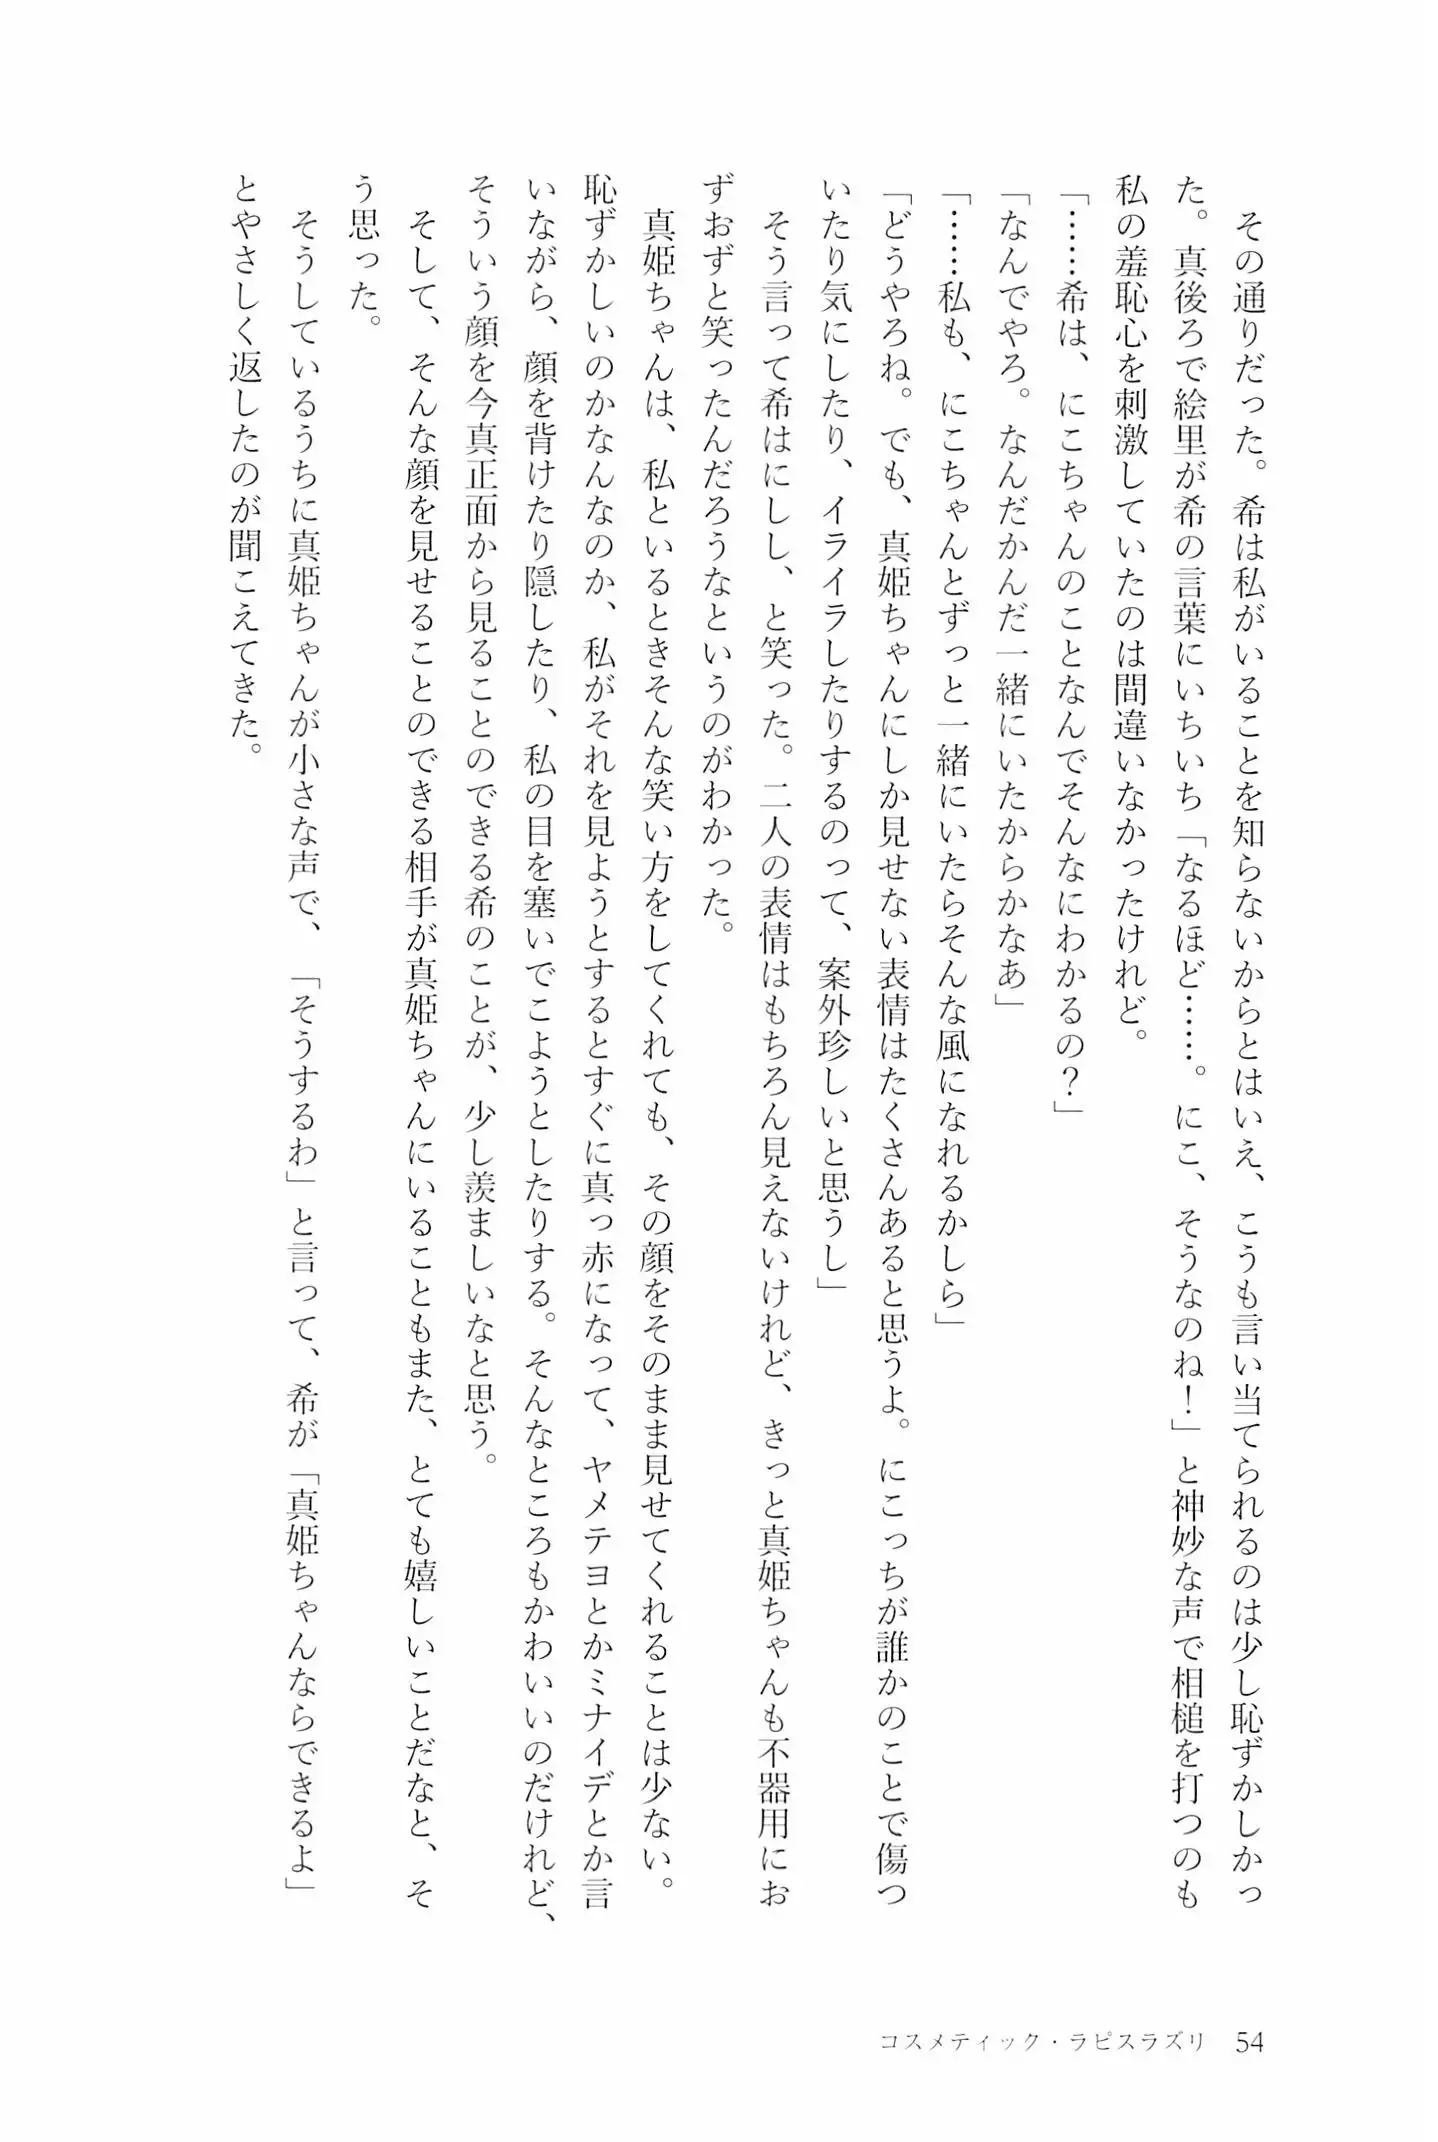 その通りだった。希は私がいることを知らないからとはいえ、こうも言い当てられるのは少し恥ずかしかっ
た。真後ろで絵里が希の言葉にいちいち「なるほど……。にこ、そうなのね！」と神妙な声で相槌を打つのも
私の羞恥心を刺激していたのは間違いなかったけれど。
「……希は、にこちゃんのことなんでそんなにわかるの？」
「なんでやろ。なんだかんだ一緒にいたからかなあ」
「……私も、にこちゃんとずっと一緒にいたらそんな風になれるかしら」
「どうやろね。でも、真姫ちゃんにしか見せない表情はたくさんあると思うよ。にこっちが誰かのことで傷つ
いたり気にしたり、イライラしたりするのって、案外珍しいと思うし」
　そう言って希はにしし、と笑った。二人の表情はもちろん見えないけれど、きっと真姫ちゃんも不器用にお
ずおずと笑ったんだろうなというのがわかった。
　真姫ちゃんは、私といるときそんな笑い方をしてくれても、その顔をそのまま見せてくれることは少ない。
恥ずかしいのかなんなのか、私がそれを見ようとするとすぐに真っ赤になって、ヤメテヨとかミナイデとか言
いながら、顔を背けたり隠したり、私の目を塞いでこようとしたりする。そんなところもかわいいのだけれど、
そういう顔を今真正面から見ることのできる希のことが、少し羨ましいなと思う。
　そして、そんな顔を見せることのできる相手が真姫ちゃんにいることもまた、とても嬉しいことだなと、そ
う思った。
　そうしているうちに真姫ちゃんが小さな声で、「そうするわ」と言って、希が「真姫ちゃんならできるよ」
とやさしく返したのが聞こえてきた。
コスメティック・ラピスラズリ　54